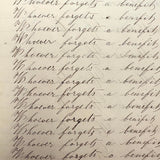 Whoever forgets a benefit
Whoever forgets a benefit
Whoever forgets a benefit
Whoever forgets a benefit,
Whoever forgets a benefit,
Whoever forgets a benefit,
Whoever forgets a benefit,
Whoever forgets a benefit,
Whoever forgets a benefit,
Whoever forgets a benefit,
Whoever forgets a benefit,
Whoever forgets a